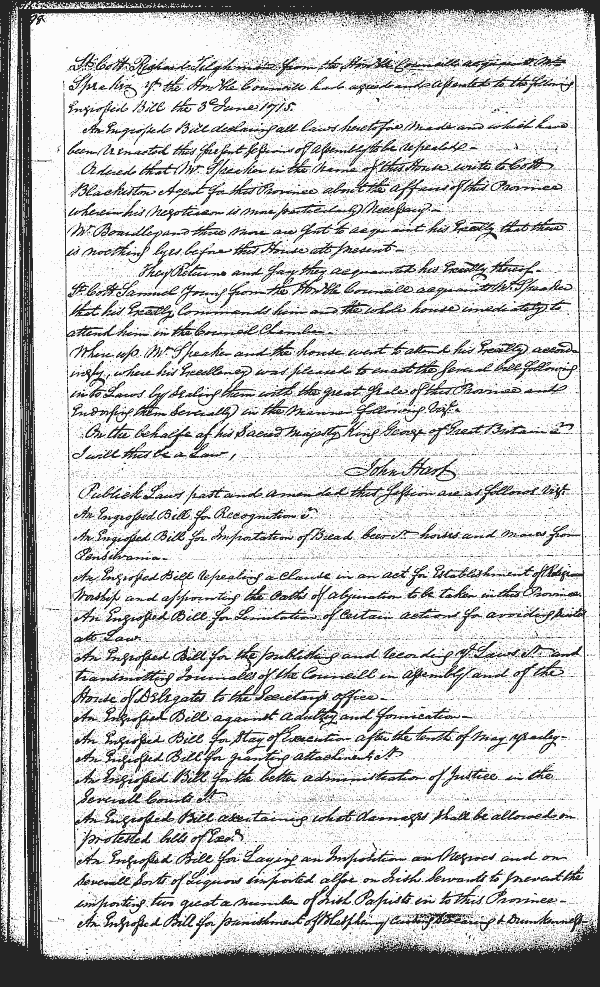 Lt. Coll. Richard Tilghman from the Honble Councill acquaints Mr.
Speaker yt the Honble Councill had agreed and assented to the following
Engrossed Bill the 3d June 1715.
An Engrossed Bill declaring all Laws heretofore Made and which have
been reenacted this present sessions of assembly to be repealed -
Ordered that Mr. Speaker in the Name of this House write to Coll
Blackiston Agent for this Province about the affairs of this Province
wherein his Negotiacon is more particularly Necessary -
Mr. Beardley and three more are sent to acquaint his Excelly that there
is noething lyes before this House att present -
They Returne and say they acquainted his Excelly thereof -
Lt. Coll Samuel Young from the Honble Councill acquaints Mr. Speaker
that his Excelly Commands him and the whole house imediately to
attend him in the Councill Chamber -
Where upo. Mr. Speaker and the house went to attend his Excelly accord-
ingly, where his Excellency was pleased to enact the severall bills following
into Laws by Sealing them with the great Seale of this Province and
Endorsing them Severally in the Manner following Vizt.
On the behalfe of his Sacred Majesty King George of Great Britain &
I will this be a Law,
John Hart
Publick Laws past and amended this Session are as follows Vizt.
An Engrossed Bill for Recognition &
An Engrossed Bill for Importation of Bread beer &c horses and mares from
Pensilvania -
An Engrossed Bill repealing a Clause in an act for Establishment of Religious
Worship and appointing the Oaths of abjuration to be taken in this Province
An Engrossed Bill for Limitation of Certain actions for avoiding suits
att Law
An Engrossed Bill for the publishing and recording of Laws &c and
transmitting Journalls of the Councill in assembly and of the
House of Delegates to the Secretarys office -
An Engrossed Bill against adultry and fornication -
An Engrossed Bill for Stay of Execution after the tenth of May yearly -
An Engrossed Bill for granting attachments &c
An Engrossed Bill for the better administration of Justice in the
Severall Courts &c
An Engrossed Bill ascertaining what damages shall be allowed on
protested bills of Exa.
An Engrossed Bill for Laying an Imposition on Negroes and on
severall sorts of Liquors imported alsoe on Irish Servants to prevent the
importing two great a number of Irish Papists in to this Province -
An Engrossed Bill for punishment of Blasphemy Cursing Swearing & Drunkenness